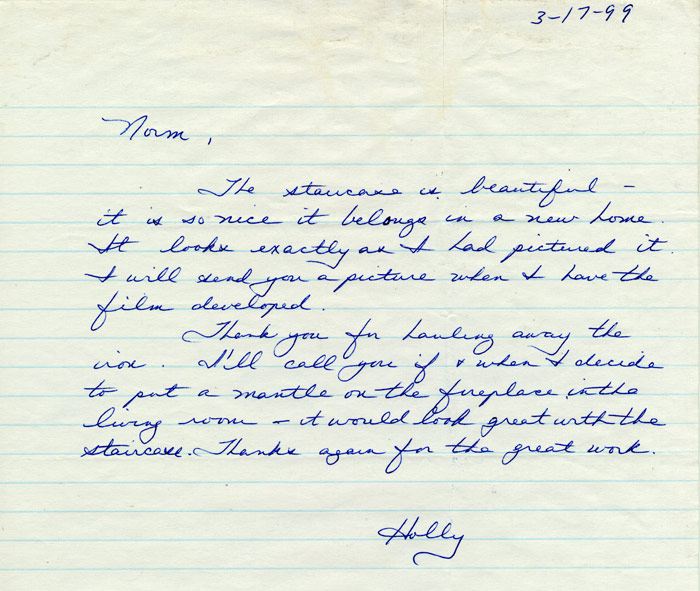 3-17-99
Norm,
The staircase is beautiful -
it is so nice it belongs in a new home.
It looks exactly as I had pictured it.
I will send you a picture when I have the
film developed.
Thank you for hauling away the
iron. I'll call you if & when I decide
to put a mantle on the fireplace in the
living room - it would look great with the
staircase. Thanks again for the great work.
Holly